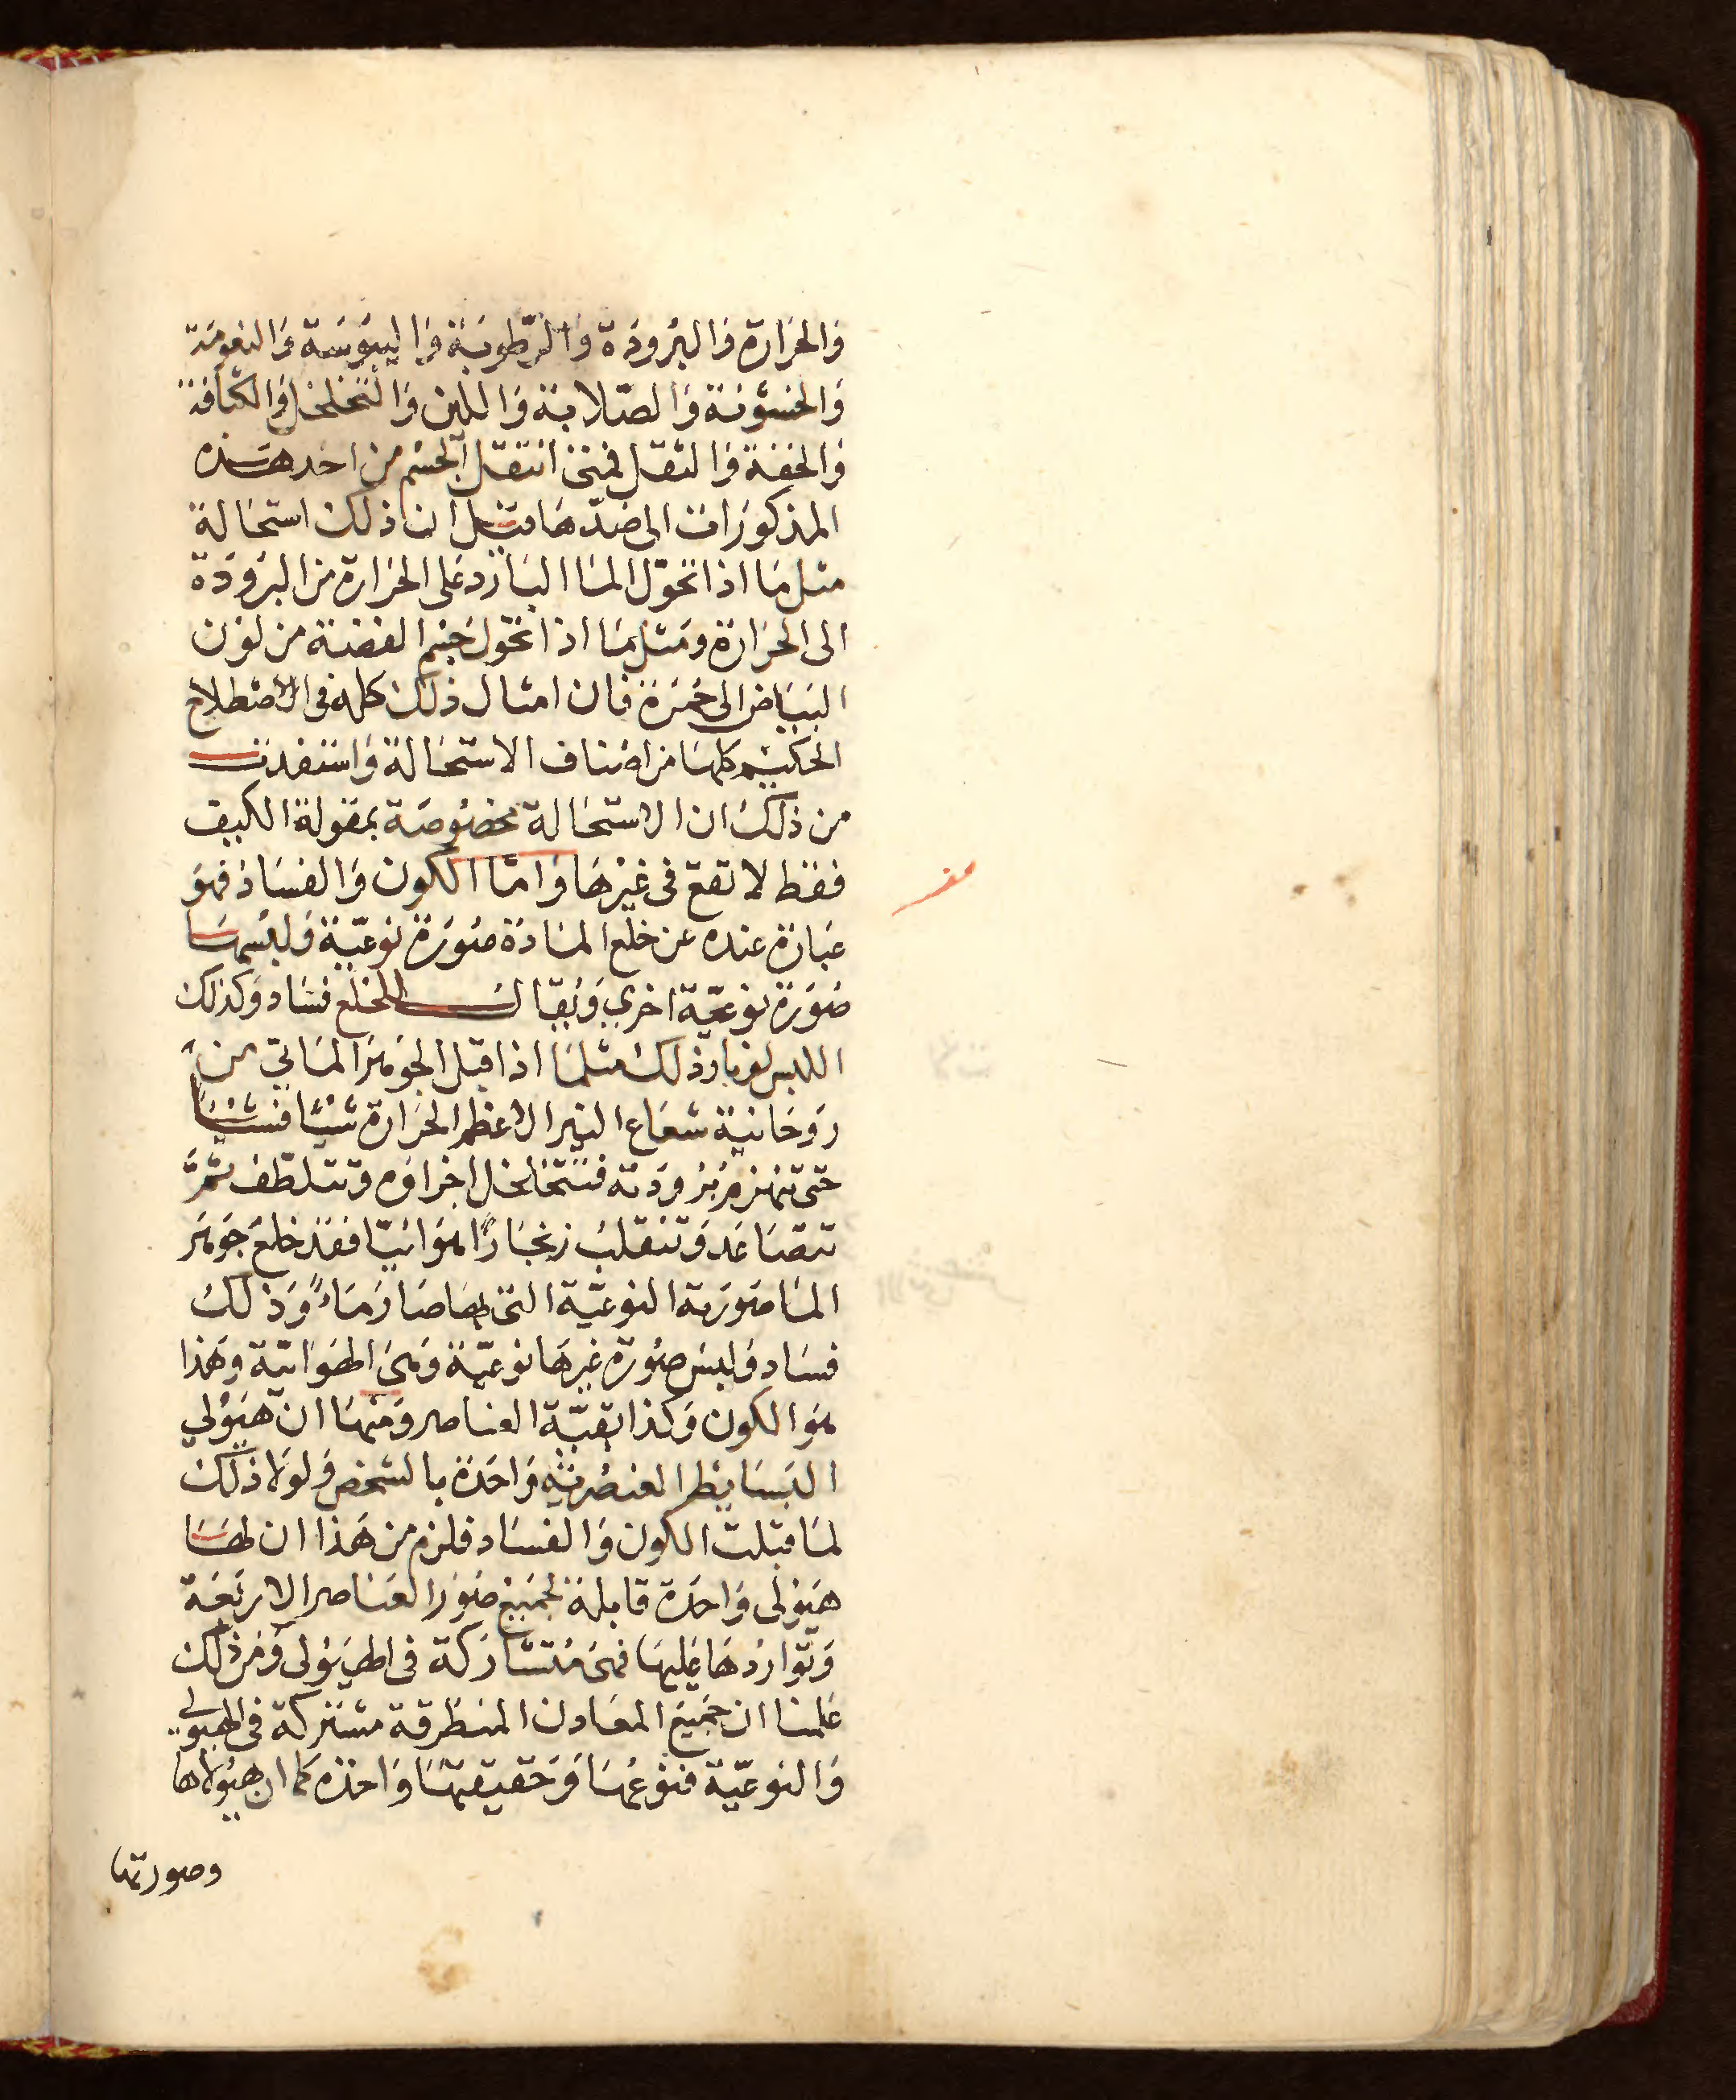 والحرارة والبرودة والرطوبة واليبوسة والنعومة
والخشونة والصلابة واللين والتخلخل والكثافة
والخفة والثقل فمتى انتقل الجسم من احد هذه
المذكورات الى ضدها قيل ان ذلك استحالة
مثل ما اذا تحول الما البارد على الحرارة من البرودة
الى الحرارة ومثل ما اذا تحول جسم الفضة من لون
البياض الى حمرة فان امثال ذلك كله في الاصطلاح
الحكيم كلها من اصناف الاستحالة واستفدت
من ذلك ان الاستحالة مخصوصة بمقولة الكيف
فقط لا تقع في غيرها واما الكون والفساد فهو
عبارة عنده عن خلع المادة صورة نوعية ولبسها
صورة نوعية اخرى ويقال للخلع فساد وكذلك
اللبس وذلك مثلما اذا قبل الجوهر الماتي من
روحانية شعاع النير الاعظم الحرارة شيئا فشيئا
حتى تنهزم برودته فتتخلخل اجزاؤه وتتلطف ثم
تتصاعد وتنقلب بخارا هوائيا فقد خلع جوهر
الما صورته النوعية التي بها صار ماءً وذلك
فساد ولبس صورة غيرها نوعية وهي الهوائية وهذا
هو الكون وكذا بقية العناصر ومنها ان هيولي
البسايط العنصرية واحدة بالشخص ولولا ذلك
لما قبلت الكون والفساد فلزم من هذا ان لها
هيولى واحدة قابلة لجميع صور العناصر الاربعة
وتواردها عليها فهي متشاركة في الهيولى ومن ذلك
علمنا ان جميع المعادن المنطرقة مشتركة في الهيولي
والنوعية فنوعها وحقيقتها واحدة كما ان هيولاها
وصورتها